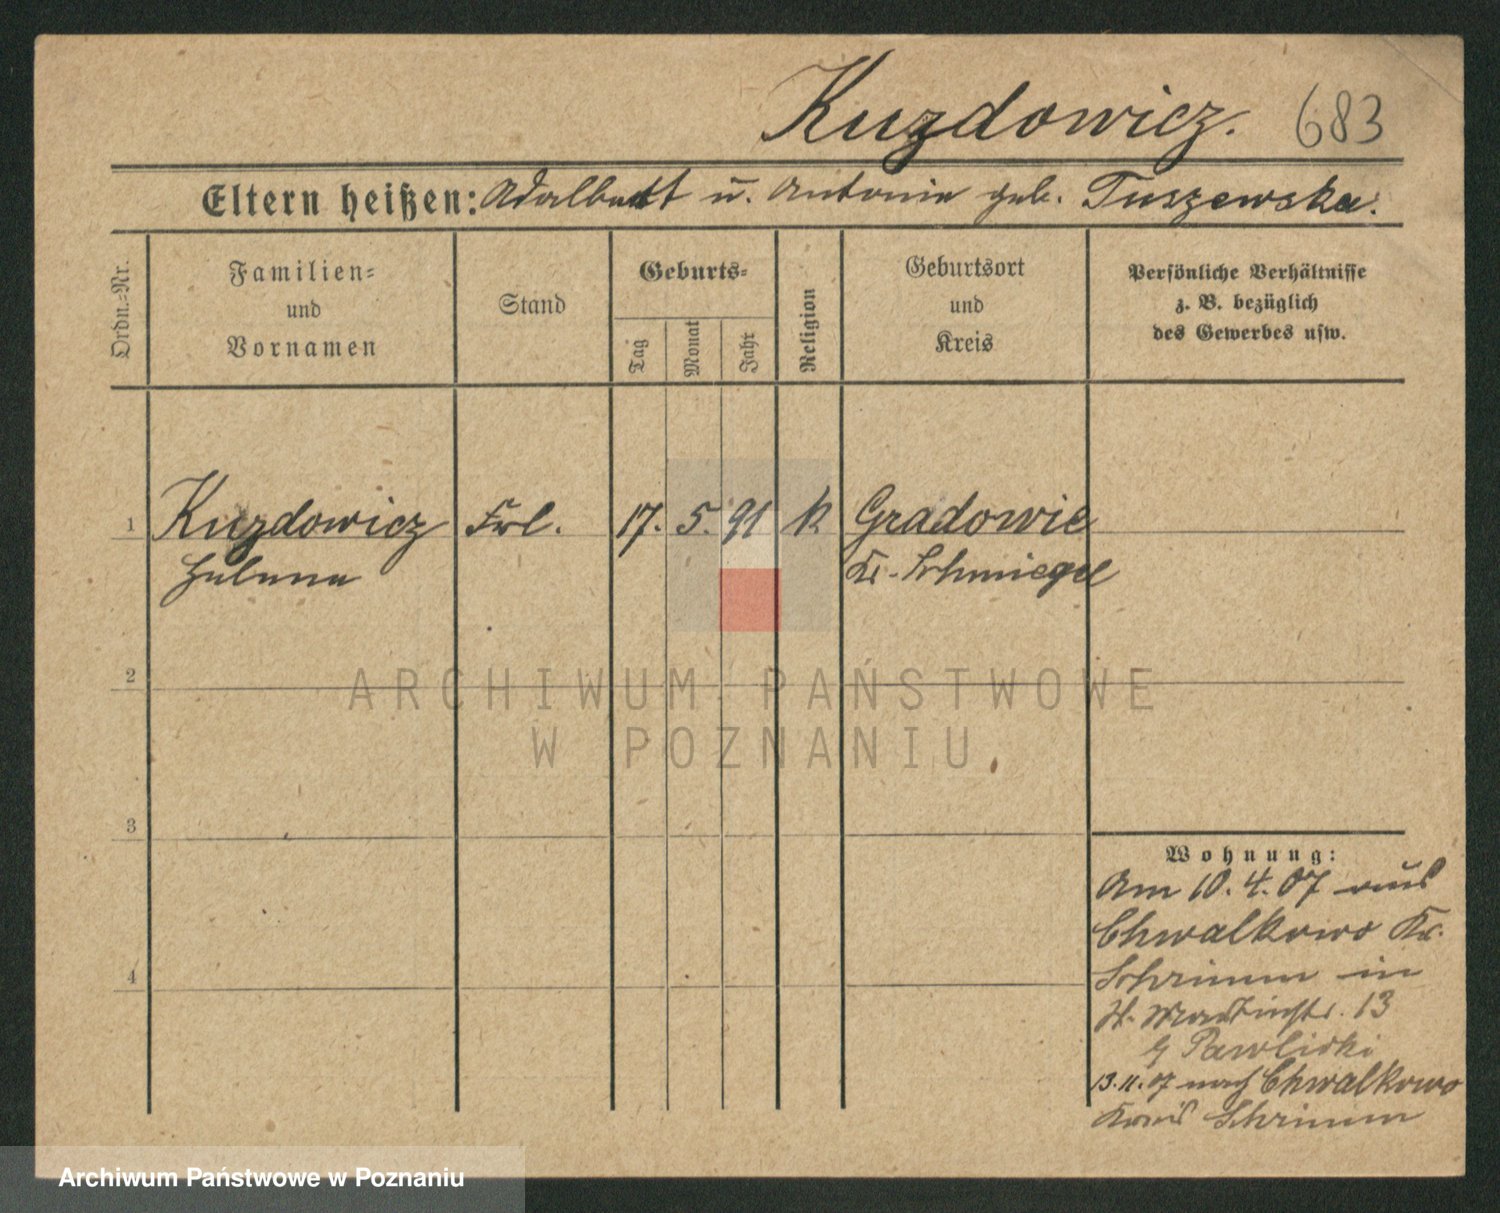 Kuzdowicz. 683
Eltern heißen: Adalbert u. Antonie geb. Tuszewska.
Ordn.-Nr.
Familien-
und
Vornamen
Stand
Geburts-
Tag
Monat
Jahr
Religion
Geburtsort
und
Kreis
Persönliche Verhältnisse
z. B. bezüglich
des Gewerbes usw.
1 Kuzdowicz Frl. 17. 5. 91 k Gradowie
Helene Kr. Schmiegel
2
ARCHIWUM PAŃSTWOWE
W POZNANIU
3
Wohnung:
Am 10.4.07 aus
Chwalkowo Kr.
4
Schrimm in
St. Martinstr. 13
Pawlicki
13.11.07 nach Chwalkowo
Kreis Schrimm
Archiwum Państwowe w Poznaniu